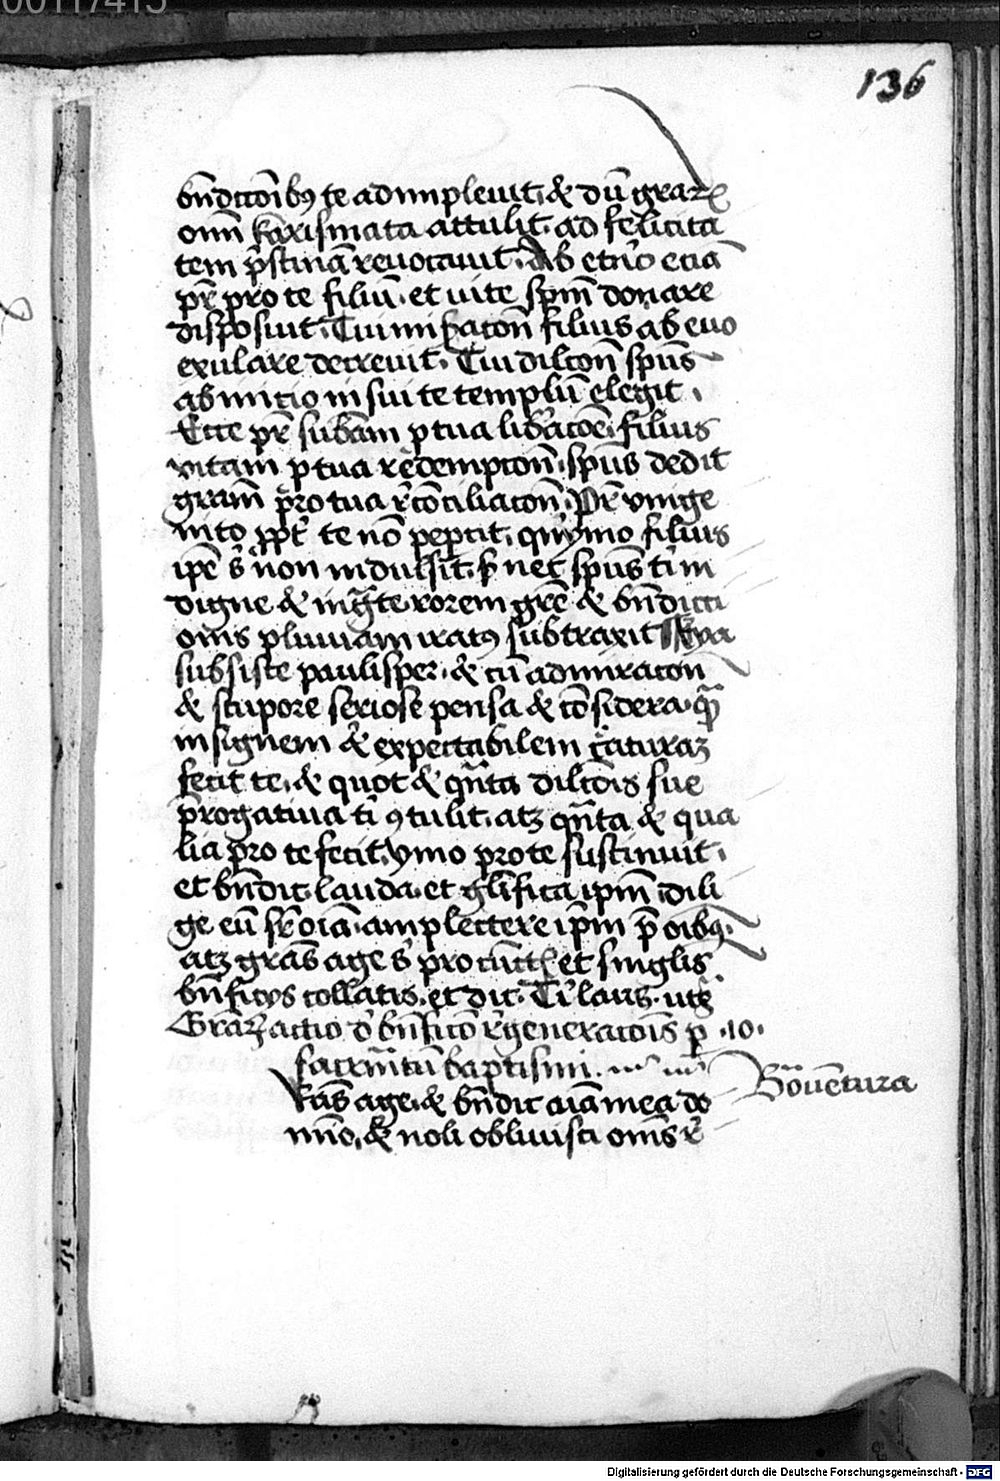 00117415
136
bn̄dictōibꝫ te adimplevit, & dū graꝝ
om̄ karismata attulit. ad felicita
tem p̄stinā revocavit. Ab et̄no eciā
pr̄ pro te filiū. et vite sp̄m donare
disposuit. Tui filius ab evo
exulare decrevit. Tui dilc̄on sp̄us
ab inicio in sui te templū elegit.
Ecce pr̄ sub̄am ꝓ tua lib̄acōe. filius
vitam ꝓ tua redempcon̄. sp̄us dedit
gram̄ pro tua r̄cōciliacon̄. Pr̄ vnige
nito ꝓpt̄ te nō peꝑcit. qn̄ymo filius
ip̄e s̄ non indulsit. nec sp̄us t̄ in
digne & ing̃te rorem gr̄e & bn̄dicti
onis pluviam iratꝰ subtraxit Eya
subsiste paulisper. & cū admiracon̄
& stupore seriose pensa & cōsidera. qͣ̄
insignem & expectabilem c̄aturaꝫ
fecit te. & quot & qn̄ta dilc̄ōis sue
p̄rogativa t̄ ꝯtulit. atꝫ qn̄ta & qua
lia pro te fecit. ymo pro te sustinuit.
et bn̄dic. lauda. et gl̄ifica ip̄m. dili
ge eū sr̄ oīa. amplectere ip̄m p̄ oībꝫ.
atꝫ grās age s̄ pro cūctꝭ et singl̄is
bn̄ficijs collatis. et dic. T̄ laus. utꝫ
Grāꝝ actio d̄ bn̄ficō r̄generacōis ꝑ .10.
sacrm̄tū baptismi.
Bōuētura
Grās age. & bn̄dic aīa mea do
mīo. & noli oblivisci om̄s r̄
Digitalisierung gefördert durch die Deutsche Forschungsgemeinschaft - DFG